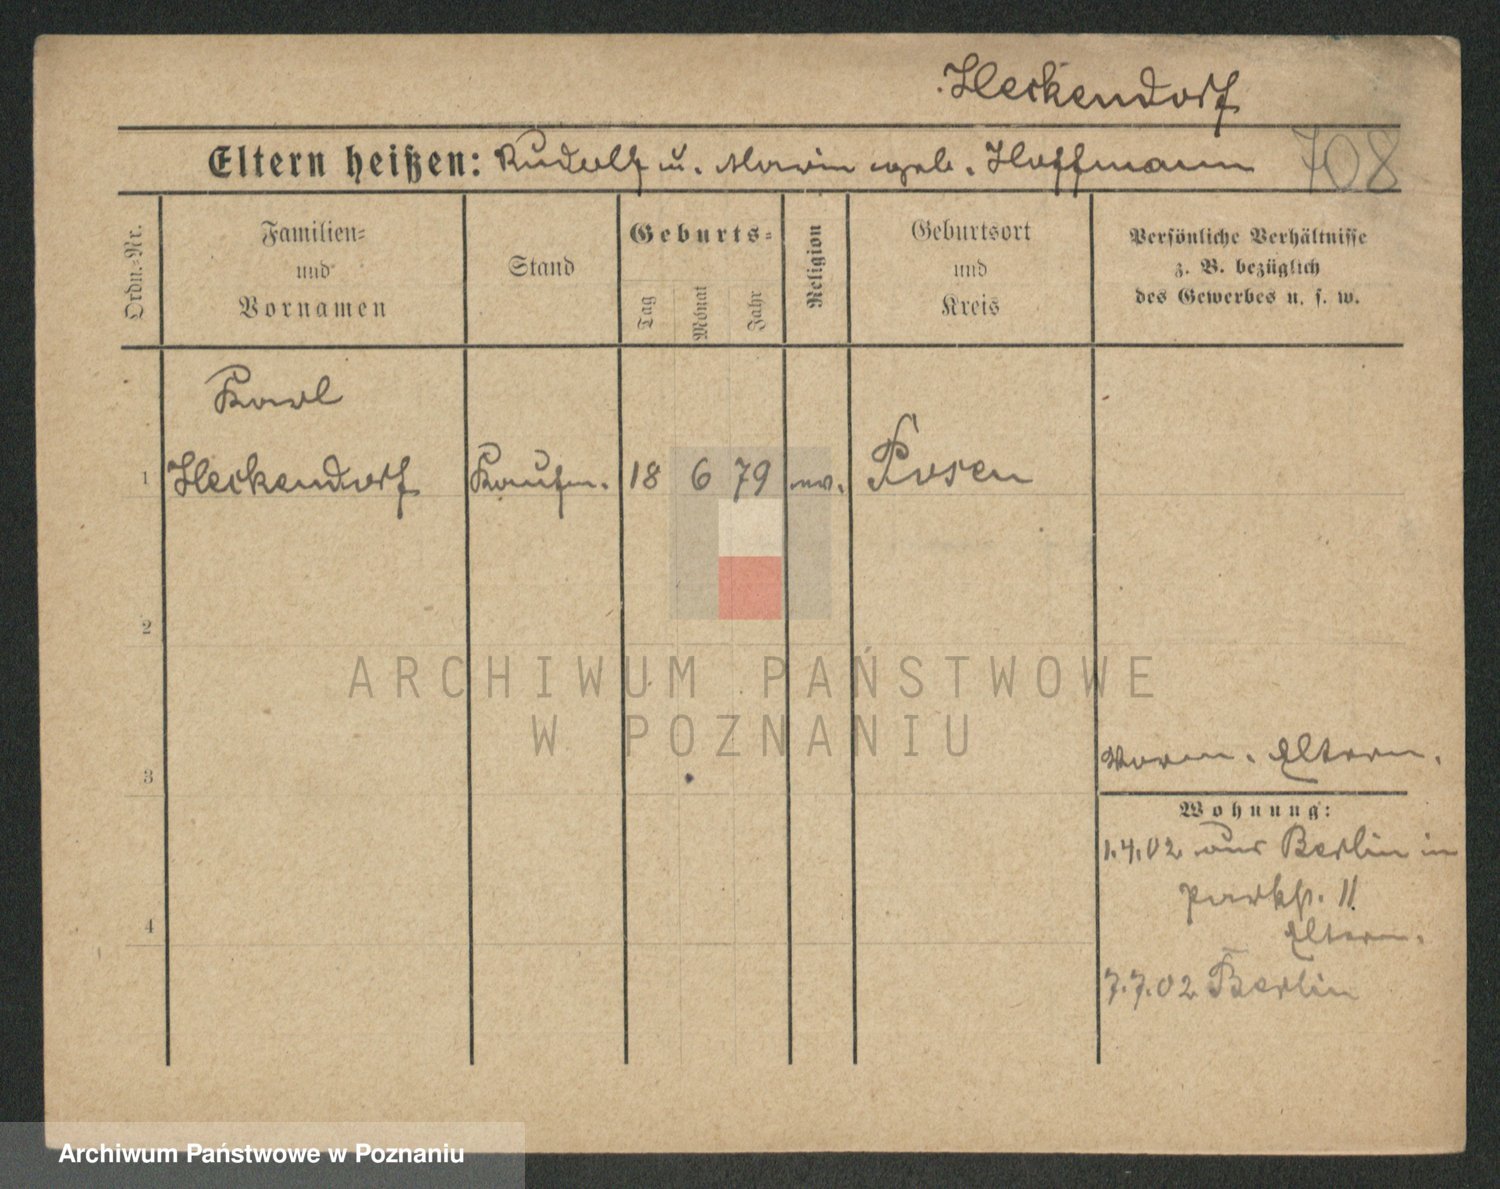 Heckendorf
Eltern heißen: Rudolf u. Marie geb. Hoffmann 708
Ordn.-Nr.
Familien-
und
Vornamen
Stand
Geburts-
Tag
Monat
Jahr
Religion
Geburtsort
und
Kreis
Persönliche Verhältnisse
z. B. bezüglich
des Gewerbes u. s. w.
Karl
1 Heckendorf Kaufm. 18 6 79 ev. Posen
2
ARCHIWUM PAŃSTWOWE
W POZNANIU
3
Eltern.
Wohnung:
1.4.02 aus Berlin in
Parkstr. 11
4
Eltern.
7.7.02 Berlin
Archiwum Państwowe w Poznaniu